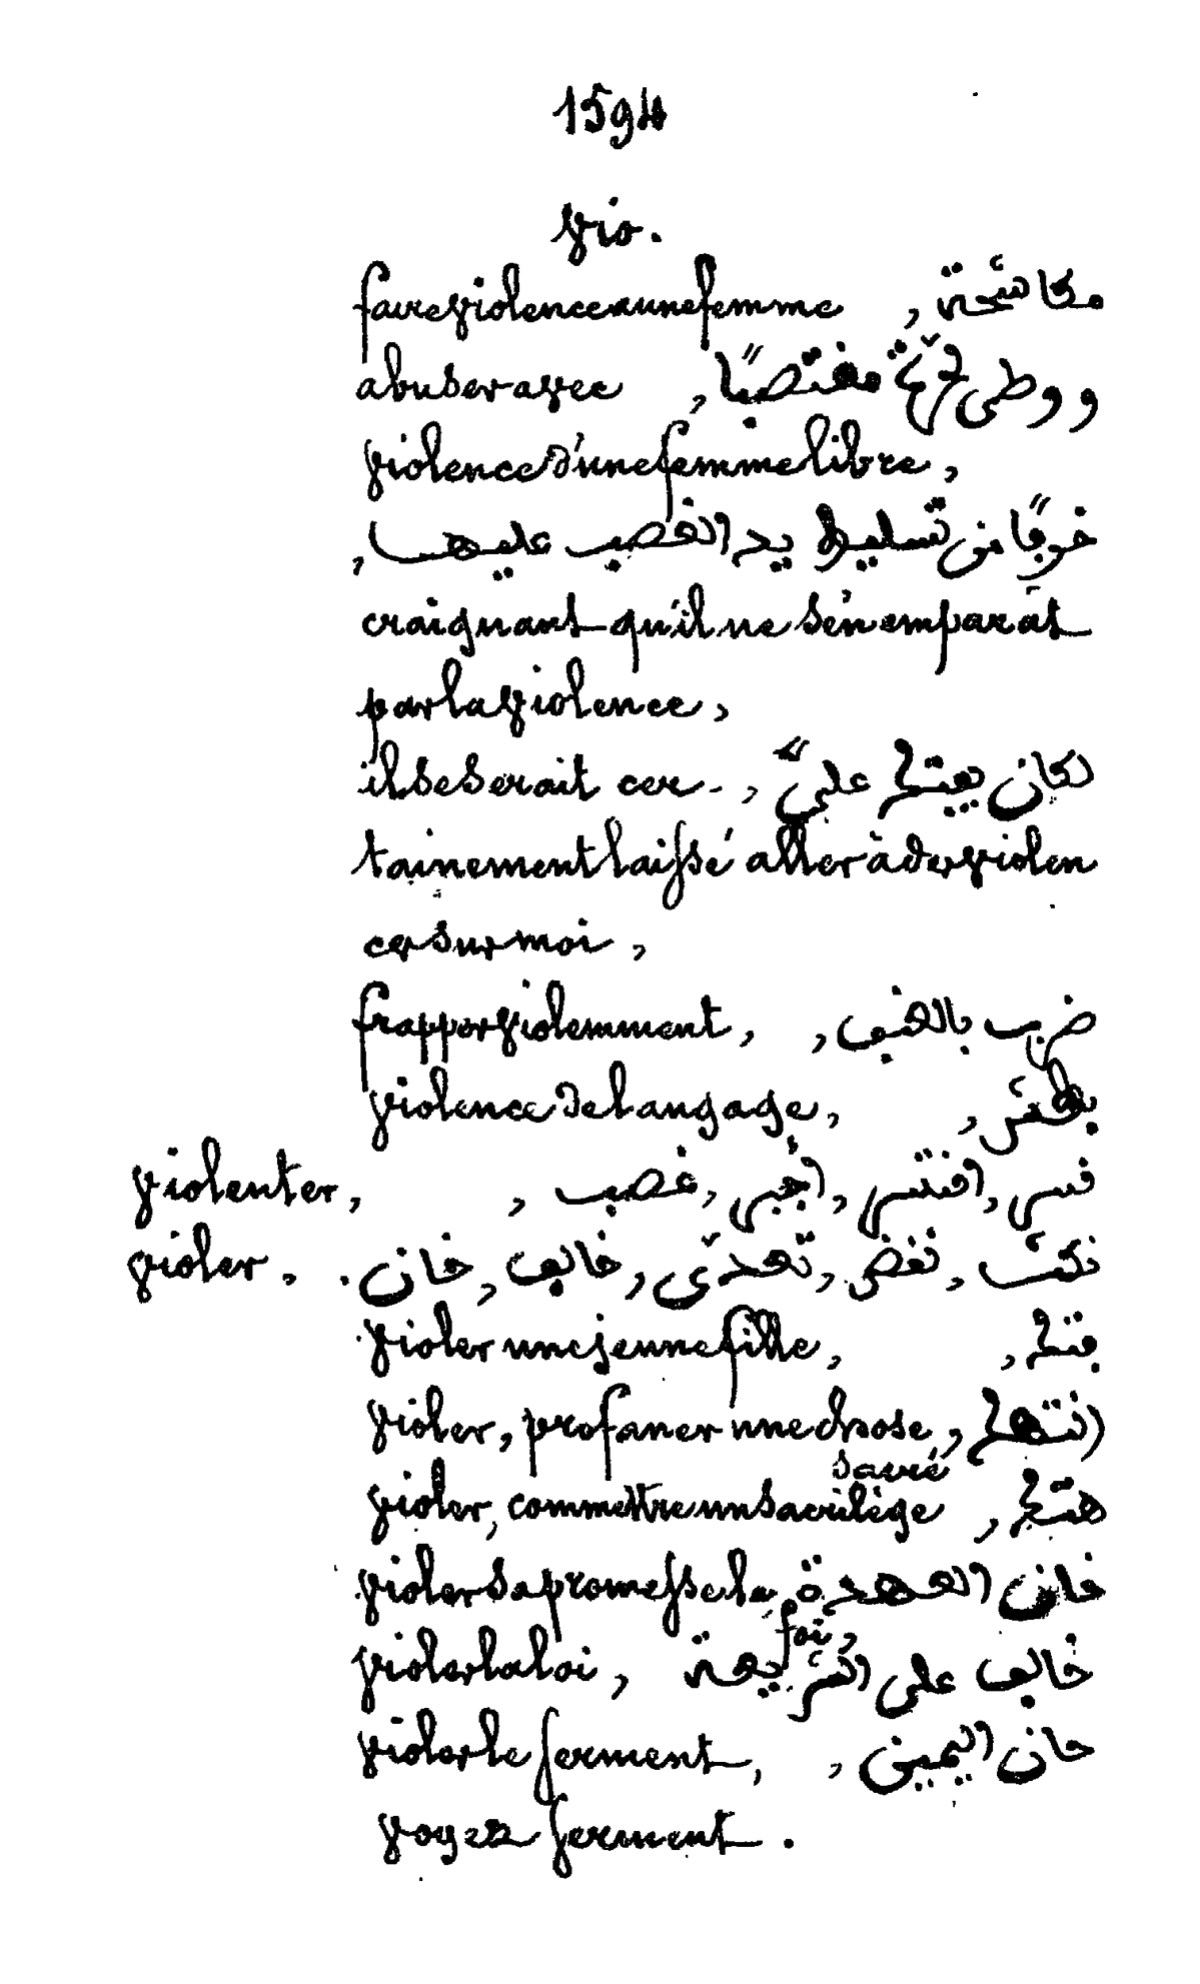 1594
vio.
faire violence a une femme , مكاشحة
abuser avec , ووطى حرّة مغتصبًا
violence d'une femme libre,
خوفًا من تسليط يد الغصب عليها,
craignant qu'il ne s'en emparât
par la violence,
il se serait cer- , لكان يفتك علىّ
tainement laissé aller à des violen
ces sur moi,
frapper violemment, , ضرب بالعنف
violence de langage, ,
violenter, , غصب , اجبر , , قسر
violer. . خان , خالف , تعدّى , نقض , نكث
violer une jeune fille, ,
violer, profaner une chose , انتهك
sacré
violer, commettre un sacrilège , هتك
violer sa promesse la خان العهدة
foi,
violer la loi, خالف على الشريعة
violer le serment, , خان اليمين
voyez serment.